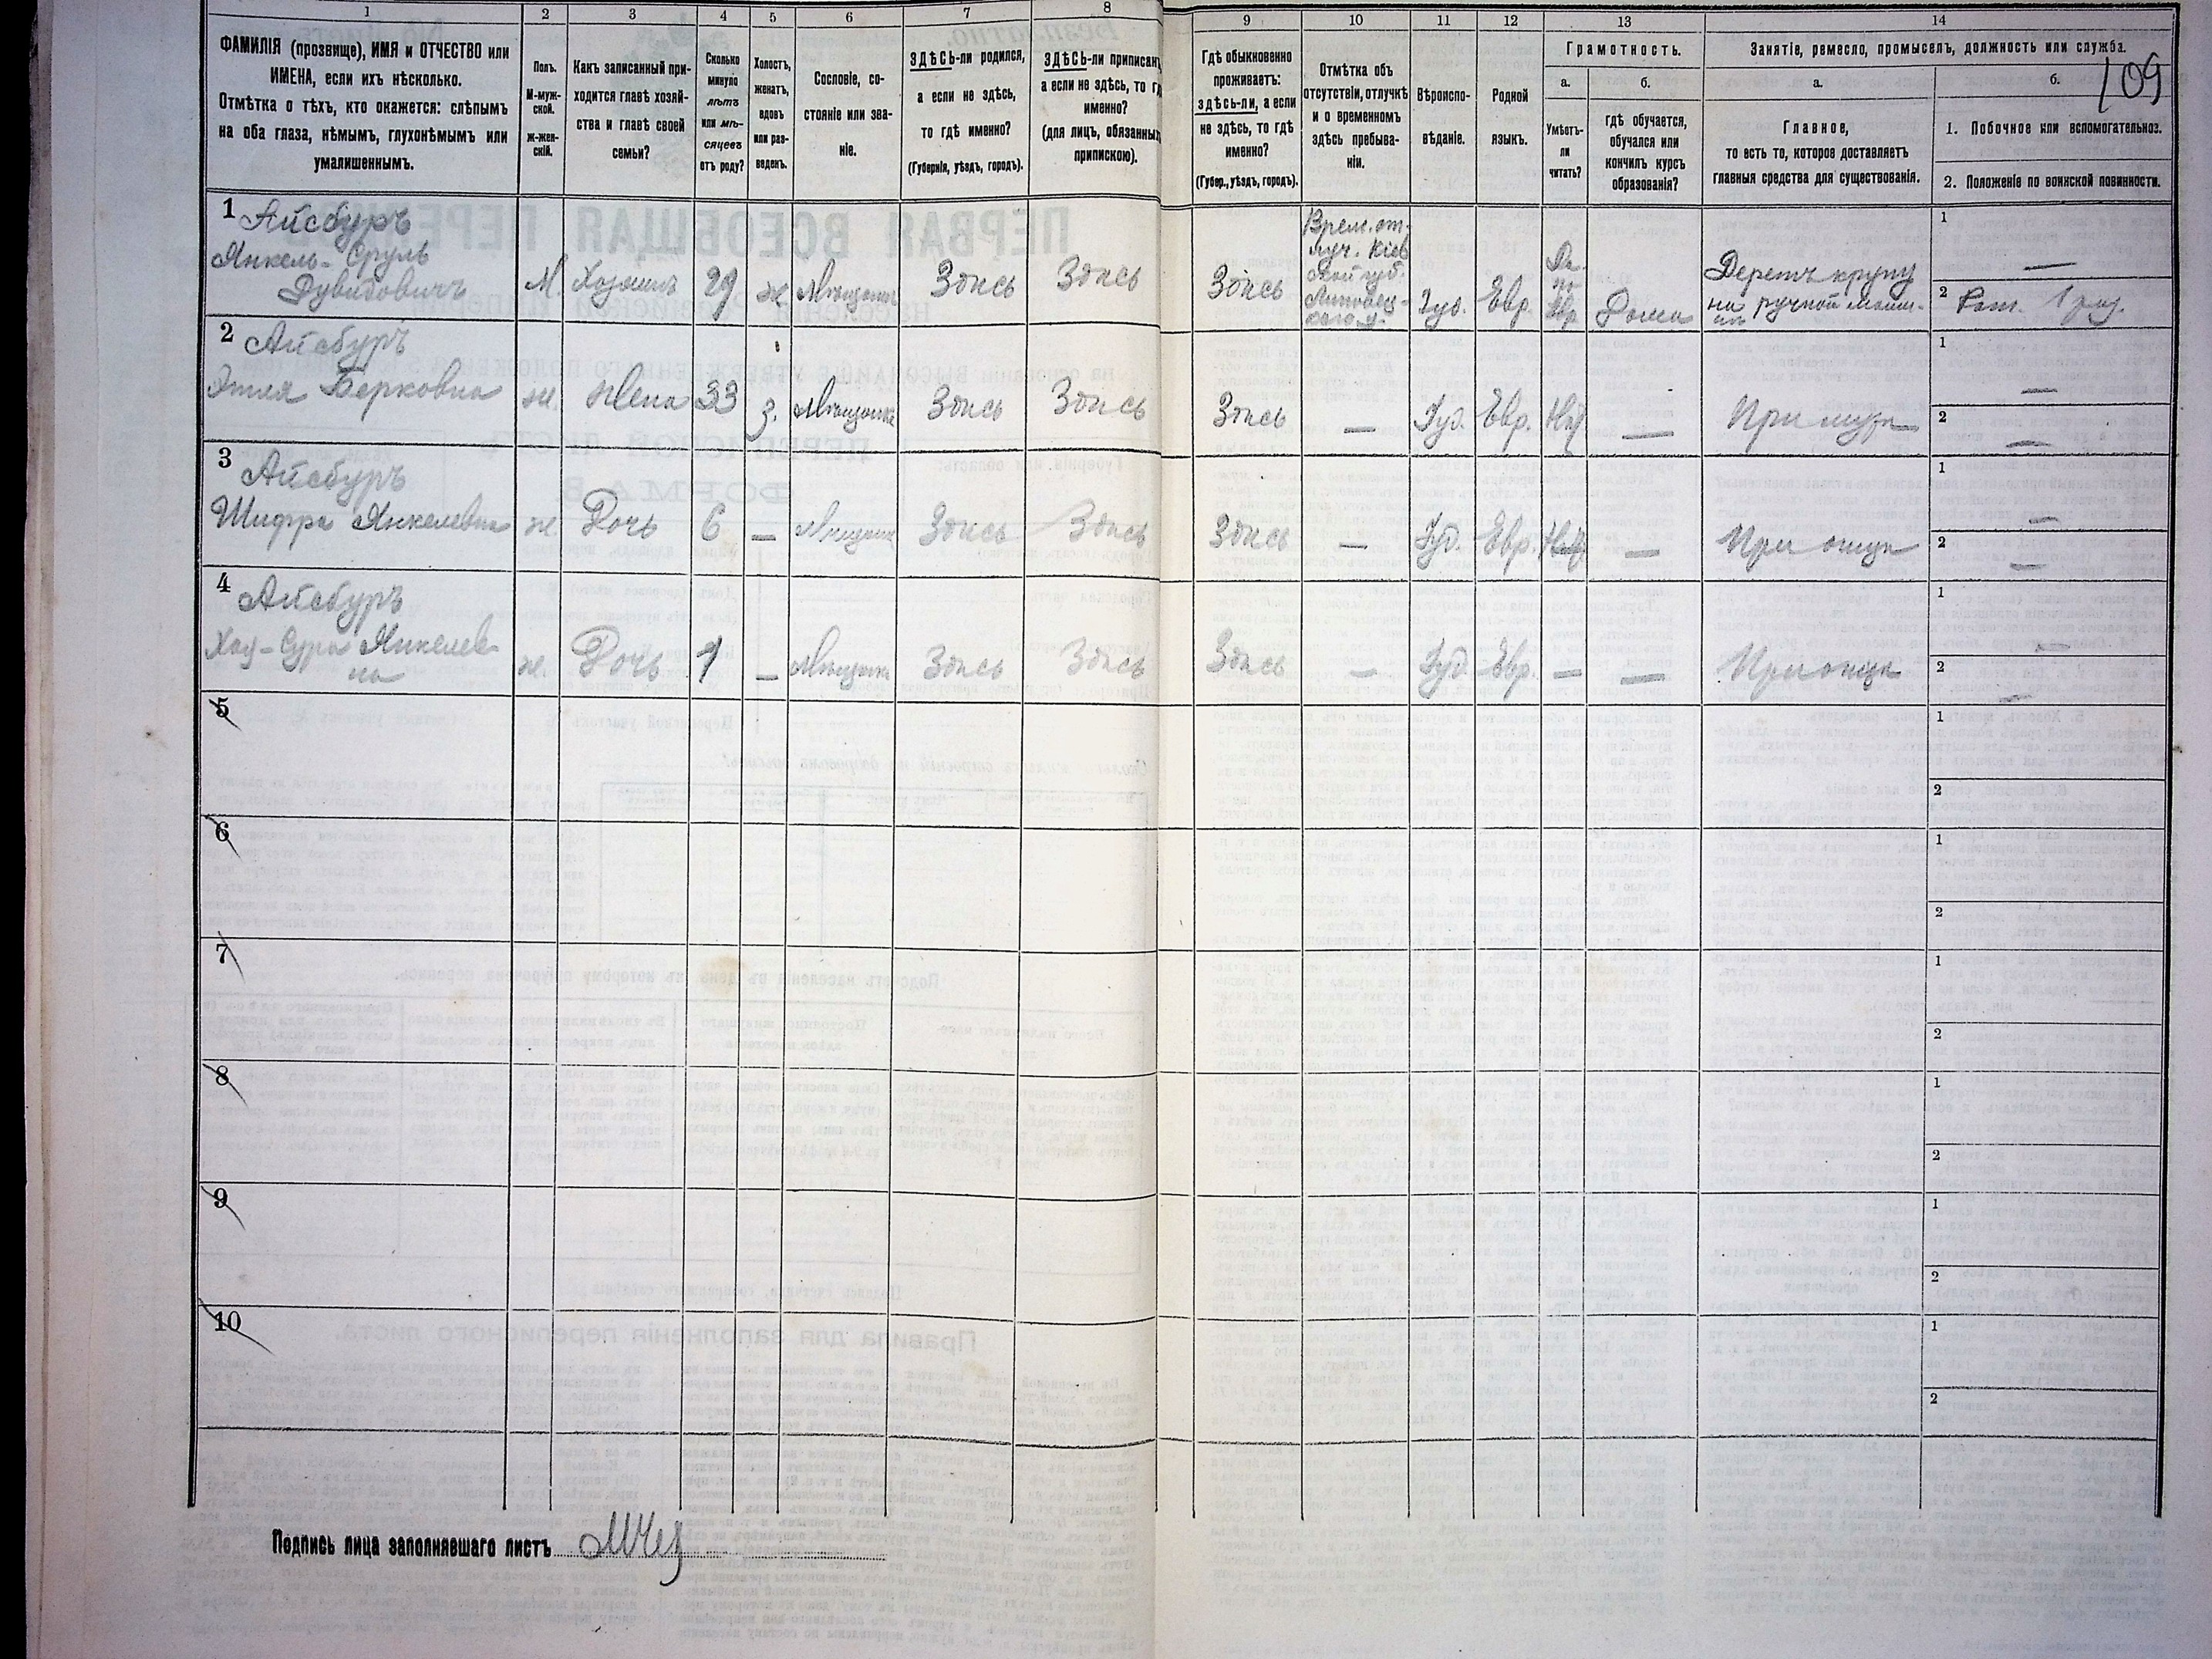 1 2 3 4 5 6 7 8 9 10 11 12 13 14
109
ФАМИЛІЯ (прозвище), ИМЯ и ОТЧЕСТВО или
ИМЕНА, если ихъ нѣсколько.
Отмѣтка о тѣхъ, кто окажется: слѣпымъ
на оба глаза, нѣмымъ, глухонѣмымъ или
умалишеннымъ.
Полъ.
М-муж-
ской.
ж-жен-
скій.
Какъ записанный при-
ходится главѣ хозяй-
ства и главѣ своей
семьи?
Сколько
минуло
лѣтъ
или мѣ-
сяцевъ
отъ роду?
Холостъ,
женатъ,
вдовъ
или раз-
веденъ.
Сословіе, со-
стояніе или зва-
ніе.
ЗДѢСЬ-ли родился,
а если не здѣсь,
то гдѣ именно?
(Губернія, уѣздъ, городъ).
ЗДѢСЬ-ли приписанъ
а если не здѣсь, то гдѣ
именно?
(для лицъ, обязанныхъ
припискою).
Гдѣ обыкновенно
проживаетъ:
здѣсь-ли, а если
не здѣсь, то гдѣ
именно?
(Губер., уѣздъ, городъ).
Отмѣтка объ
отсутствіи, отлучкѣ
и о временномъ
здѣсь пребыва-
ніи.
Вѣроиспо-
вѣданіе.
Родной
языкъ.
Грамотность.
а.
Умѣетъ-
ли
читать?
б.
гдѣ обучается,
обучался или
кончилъ курсъ
образованія?
Занятіе, ремесло, промыселъ, должность или служба.
а.
Главное,
то есть то, которое доставляетъ
главныя средства для существованія.
б.
1. Побочное или вспомогательное.
2. Положеніе по воинской повинности.
1 Айсбуръ
Янкель-Сруль
Дувидовичъ
М. Хозяинъ 29 ж Мѣщанинъ Здѣсь Здѣсь Здѣсь
Врем. от-
луч. Кіев
ской губ.
Липовец-
каго у.
Іуд. Евр.
Да
по
Евр
Дома
Деретъ крупу
на ручной маши-
нѣ
1 —
2 Рат. 1 раз.
2 Айсбуръ
Этля Берковна ж. Жена 33 з. Мѣщанка Здѣсь Здѣсь Здѣсь — Іуд. Евр. Нѣт — При мужѣ
1 —
2 —
3 Айсбуръ
Шифра Янкелевна ж. Дочь 6 — Мѣщанка Здѣсь Здѣсь Здѣсь — Іуд. Евр. Нѣт — При отцѣ
1 —
2 —
4 Айсбуръ
Хая-Сура Янкелев-
на
ж. Дочь 1 — Мѣщанка Здѣсь Здѣсь Здѣсь — Іуд. Евр. — — При отцѣ
1 —
2 —
5 1
2
6 1
2
7 1
2
8 1
2
9 1
2
10 1
2
Подпись лица заполнявшаго листъ